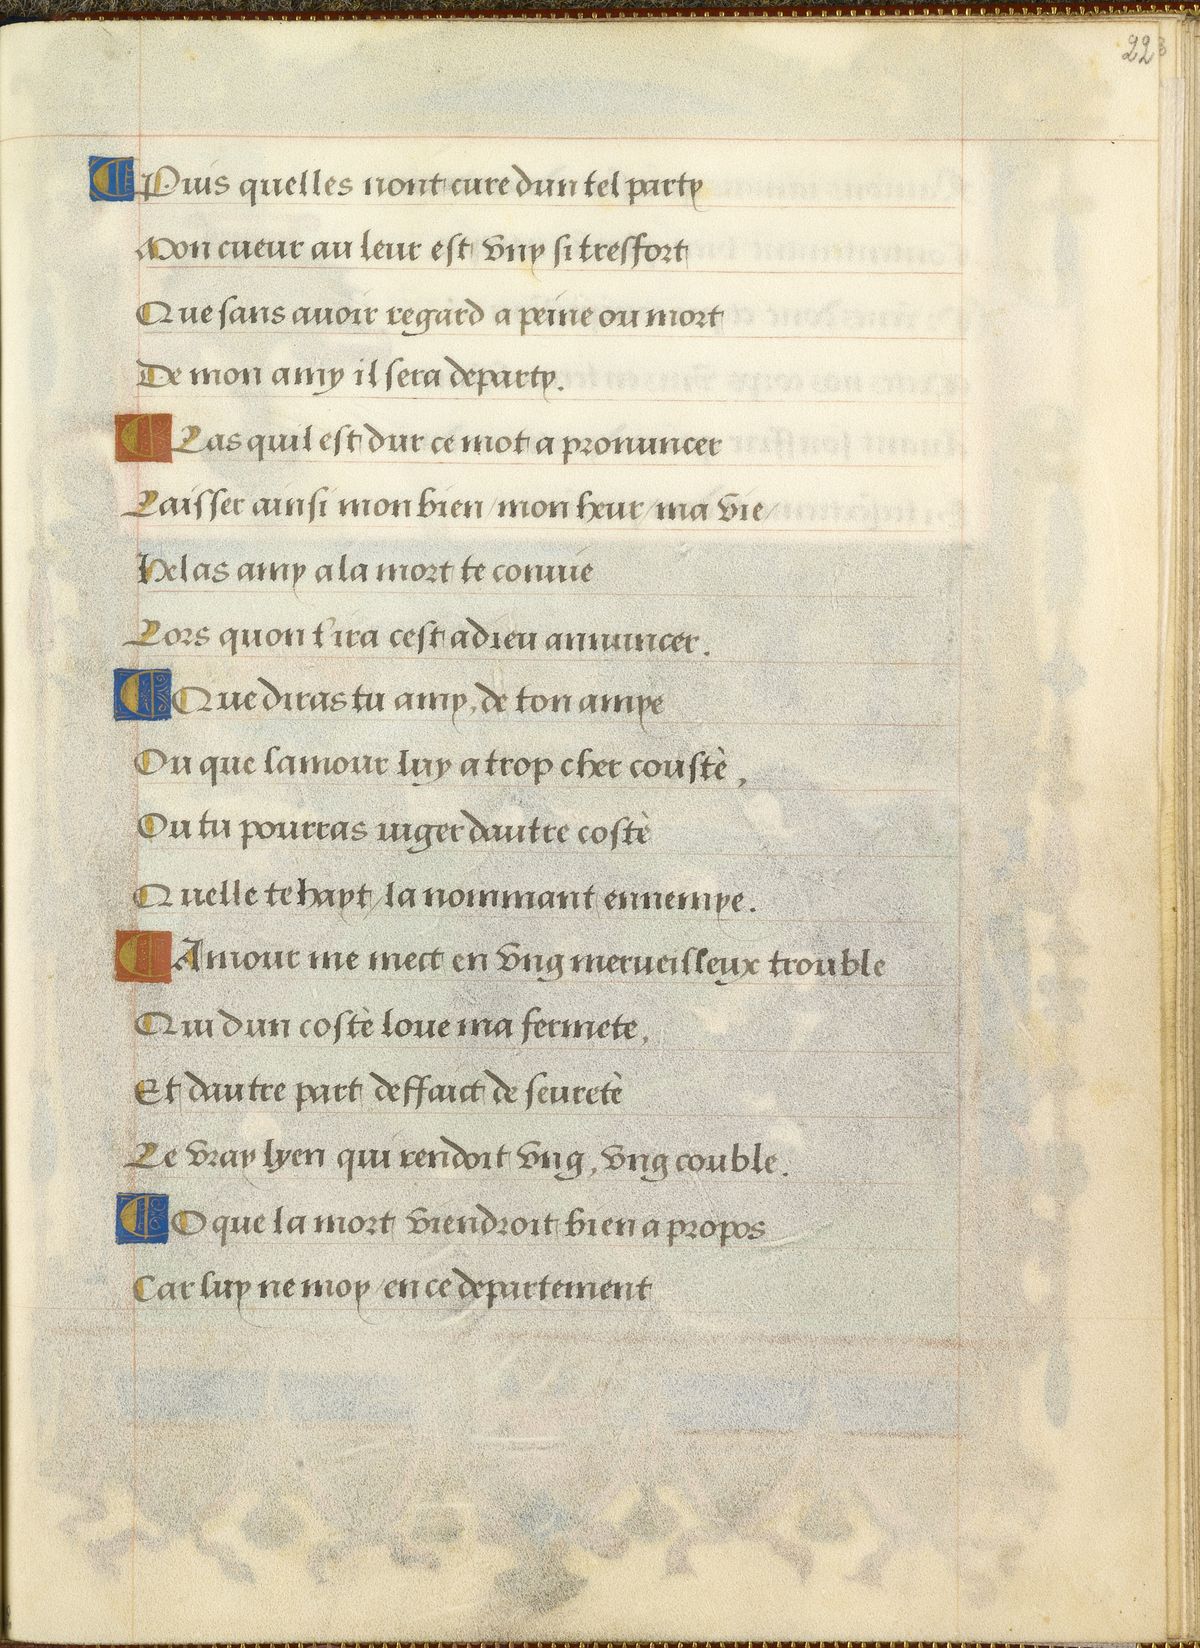 223
Puis quelles nont cure dun tel party
Mon cueur au leur est vny si tresfort
Que sans auoir regard a peine ou mort
De mon amy il sera departy.
Las quil est dur ce mot a pronuncer
Laisser ainsi mon bien / mon heur / ma vie
Helas amy a la mort te conuie
Lors quon t'ira cest adieu annuncer.
Que diras tu amy, de ton amye
Ou que lamour luy a trop cher coustè,
Ou tu pourras iuger dautre costè
Quelle te hayt / la nommant ennemye.
Amour me mect en vng merueilleux trouble
Qui dun costè loue ma fermete,
Et dautre part deffaict de seuretè
Le vray lyen qui rendoit vng, vng couble.
O que la mort viendroit bien a propos
Car luy ne moy / en ce departement